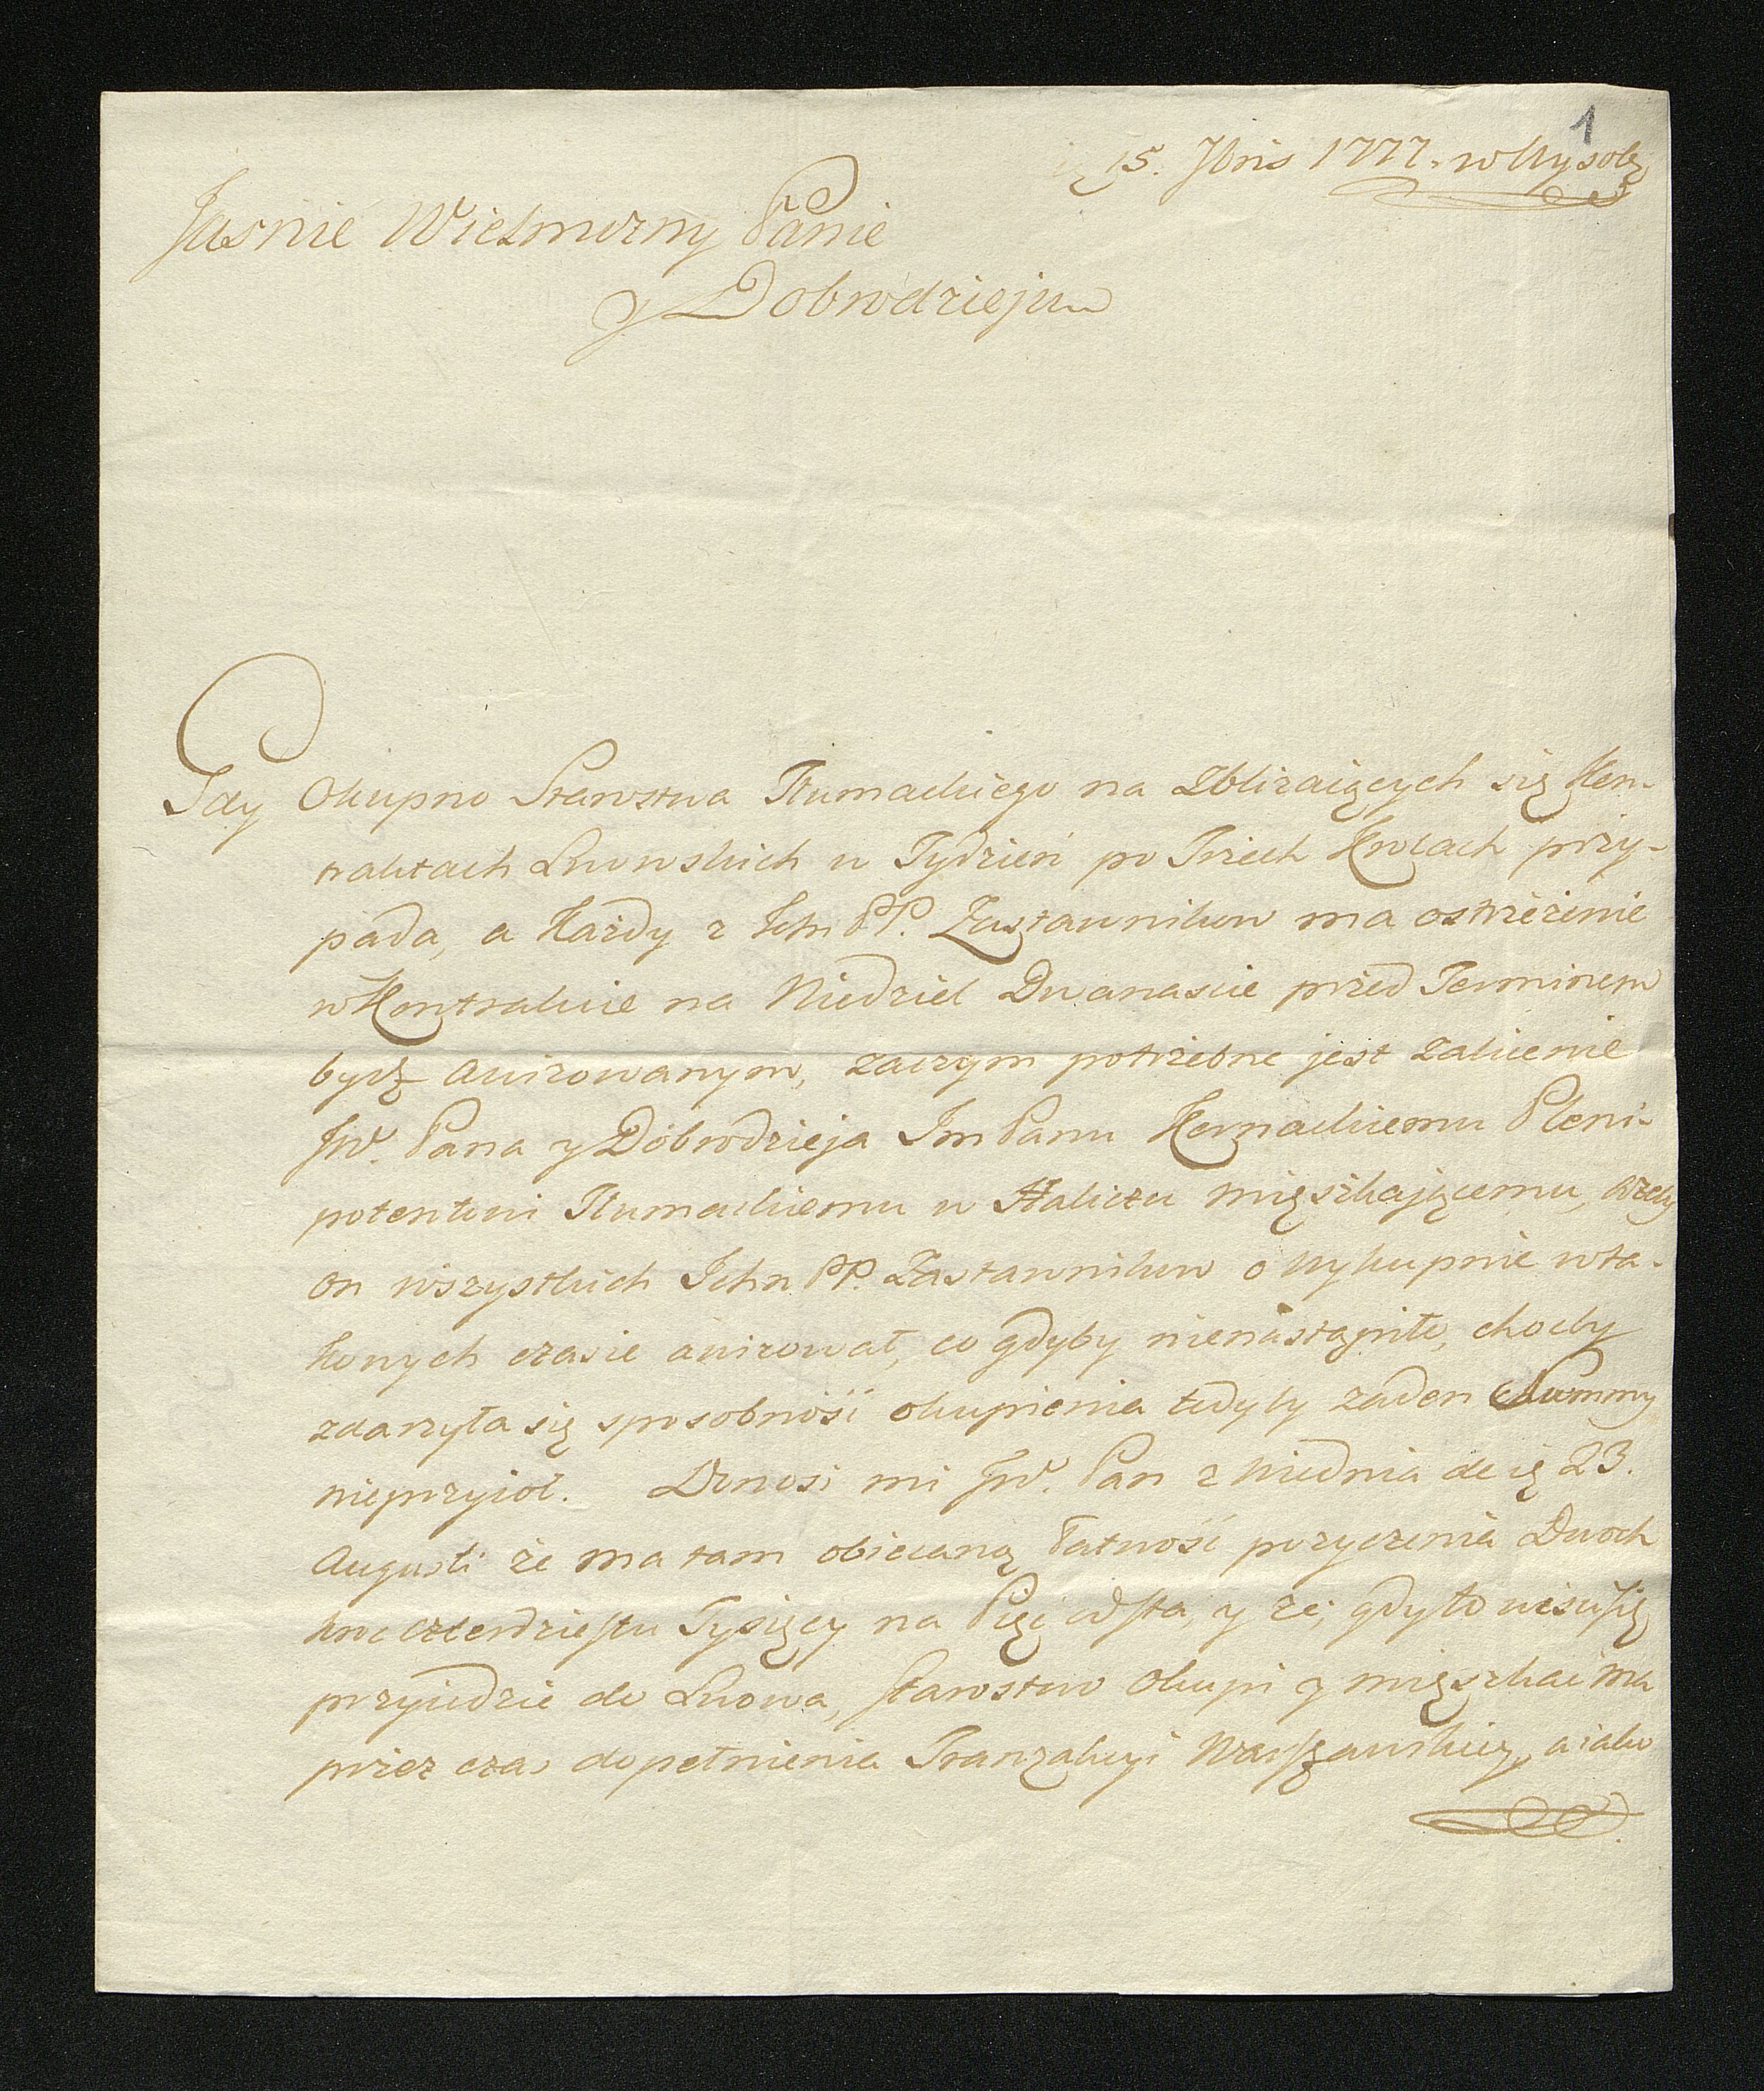 1
15. 7bris 1777. w Wysoky
Jasnie Wielmozny Panie
y Dobrodzieju
Gdy Okupno Starostwa Tłumackiego na Zbliżaiących się Kon-
traktach Lwowskich w Tydzień po Trzech Krolach przy-
pada, a Każdy z Ichm PP. Zastawnikow ma ostrzeżenie
w Kontrakcie na Niedziel Dwanascie przed Terminem
bydź awizowanym, zaczym potrzebne jest zalecenie
JW. Pana y Dobrodzieja Jm Panu Kernackiemu Pleni-
potentowi Tłumackiemu w Haliczu mięszkającemu, ażeby
on wszystkich Ichm PP. Zastawnikow o wykupnie w ta-
kowych czasie awizował, co gdyby nienastąpiło, choćby
zdarzyła się sposobność okupienia tedyby żaden Summy
nieprzyioł. Donosi mi JW. Pan z Wiednia de 23.
Augusti że ma tam obiecaną łatwość pozyczenia Dwoch
kroc czterdziestu Tysięcy na Pięć od sta, y że, gdy to uisci się
przyiedzie do Lwowa, starostwo okupi y mięszkać ma
przez czas dopełnienia Tranzakcyi Warszawskiey, a iako